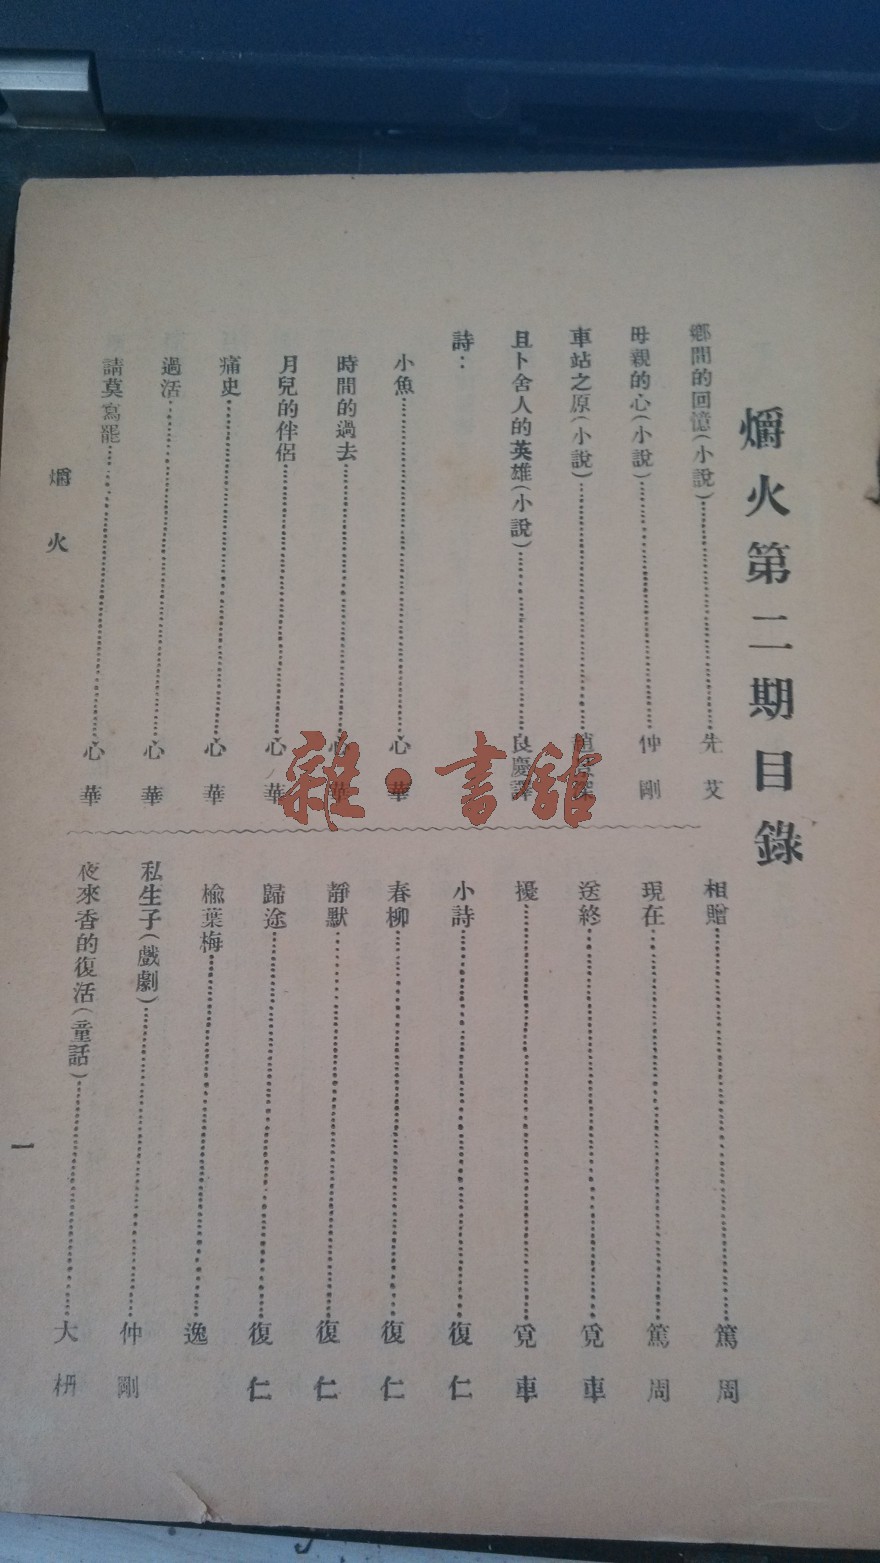 爝火第二期目錄
鄉間的回憶(小說)……先艾
母親的心(小說)……仲剛
車站之原(小說)……趙景深
且卜舍人的英雄(小說)……良慶譯
詩：
小魚……心華
時間的過去……心華
月兒的伴侶……心華
痛史……心華
過活……心華
請莫寫罷……心華
相贈……篤周
現在……篤周
送終……覓車
擾……覓車
小詩……復仁
春柳……復仁
靜默……復仁
歸途……復仁
榆葉梅……逸
私生子(戲劇)……仲剛
夜來香的復活(童話)……大枬
爝火
一
雜·書館